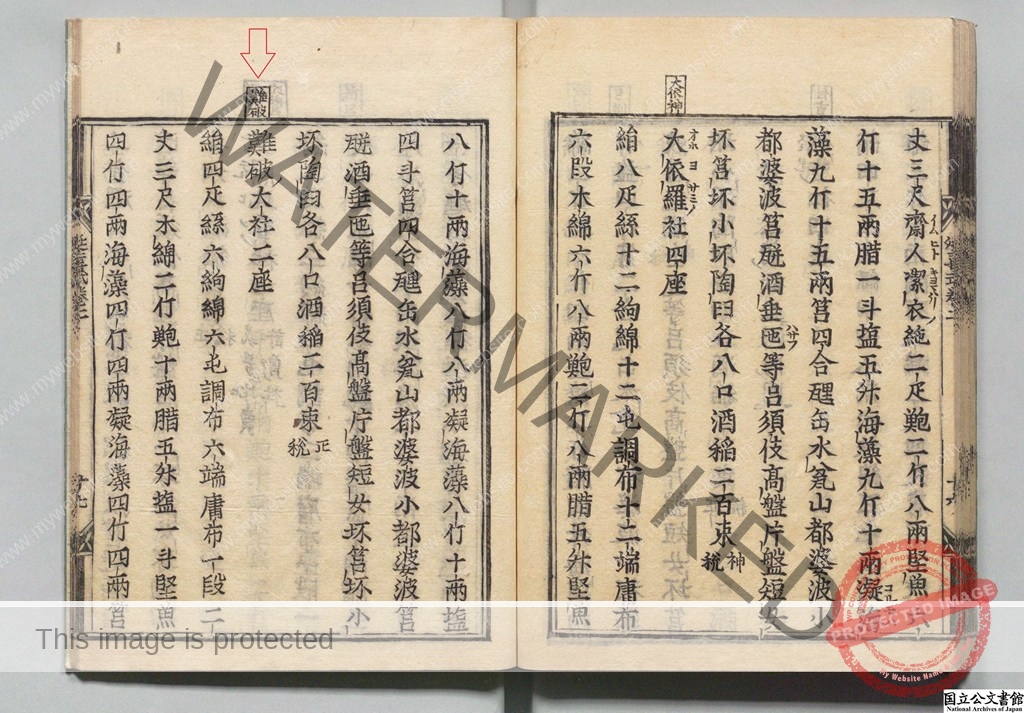 大依神
丈三尺齋人潔衣絁二疋鞄二斤八兩堅魚
斤十五兩腊一斗塩五舛海藻九斤十兩凝海
藻九斤十五兩筥四合瓼缶水瓫山都婆波小
都婆波筥瓼酒垂匜等呂須伎高盤片盤短女
坏筥坏小坏陶臼各八口酒稲二百束神税
大依羅社四座
絹八疋絲十二絇綿十二屯調布十二端庸布
六段木綿六斤八兩鞄二斤八兩腊五舛堅魚
難破
八斤十兩海藻八斤八兩凝海藻八斤十兩塩
四斗筥四合瓼缶水瓫山都婆波小都婆波筥
瓼酒垂匜等呂須伎高盤片盤短女坏筥坏小
坏陶臼各八口酒稲二百束正税
難破大社二座
絹四疋絲六絇綿六屯調布六端庸布一段二
丈三尺木綿二斤鞄十兩腊五舛塩一斗堅魚
四斤四兩海藻四斤四兩凝海藻四斤四兩筥
WATERMARKED
This image is protected
PROTECTED IMAGE
My Website Name
国立公文書館
National Archives of Japan